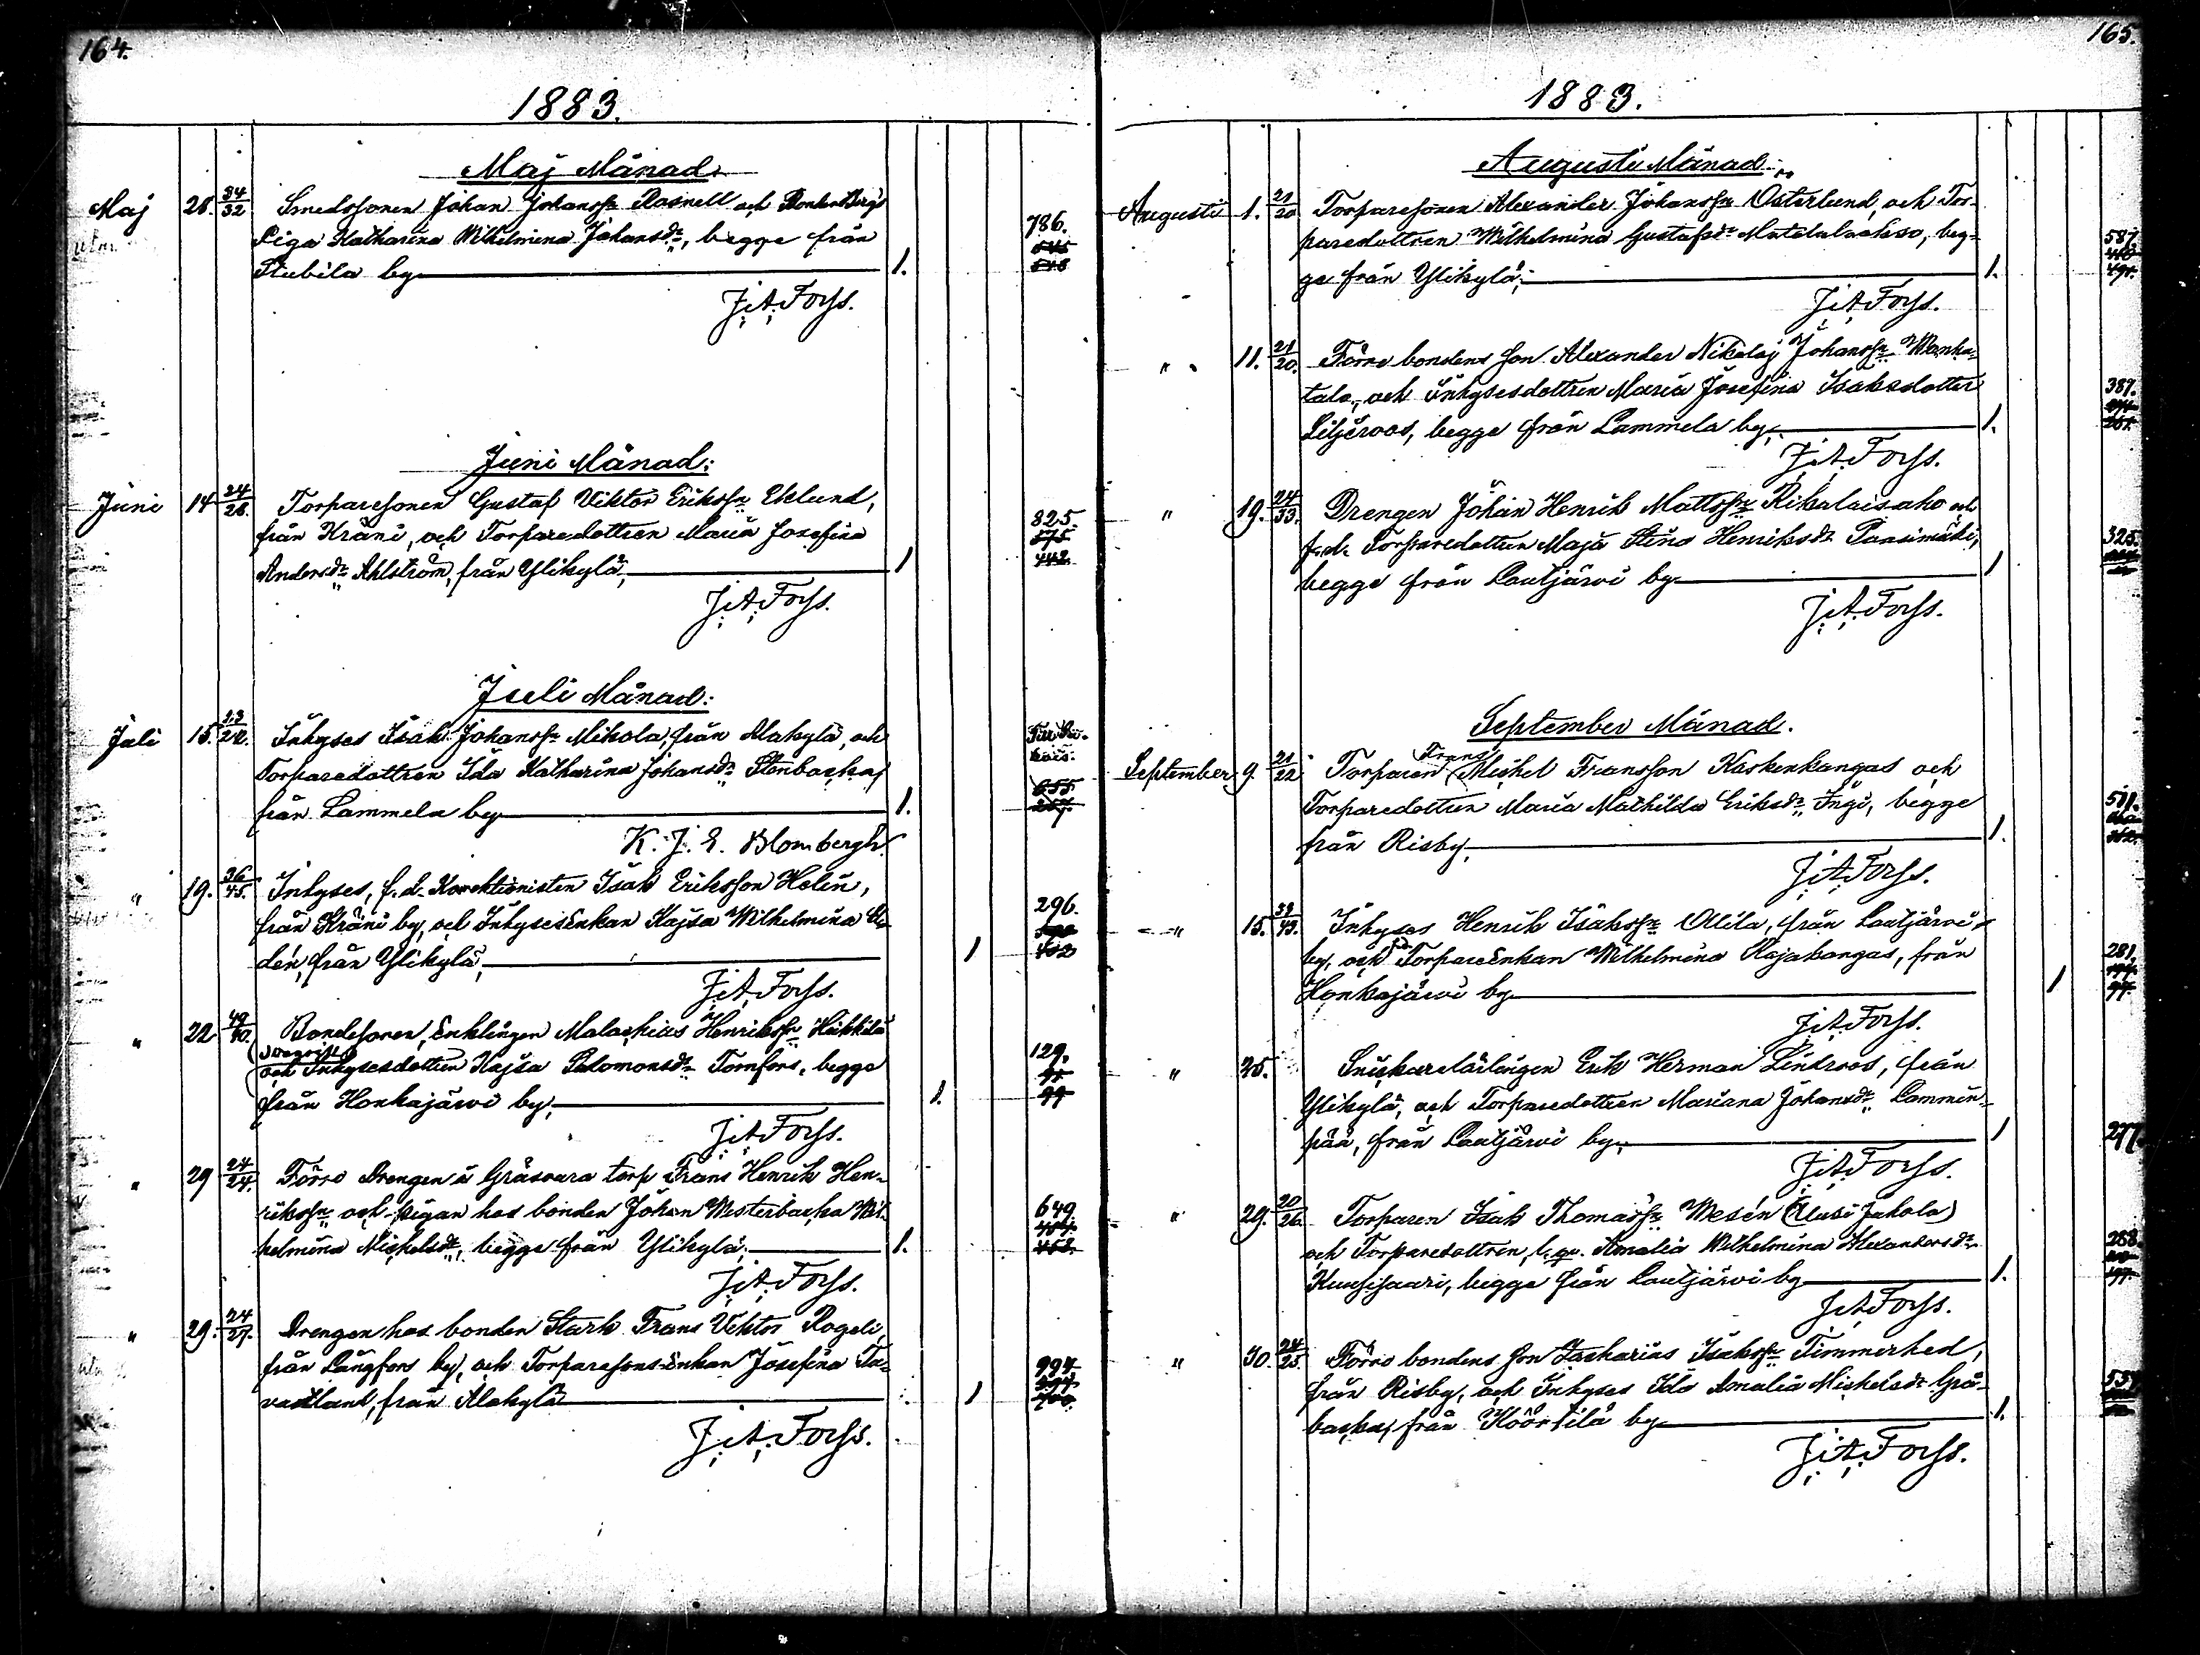 164.
1883.
Maj Månad.
Maj 28. 34/32 Smedssonen Johan Johanss:n Rasnell och Bonden Bergs 786.
Piga Katharina Wilhelmina Johansd:r, begge från
Stubila by 1.
J. A. Forss.
Juni Månad:
Juni 14 24/28. Torparesonen Gustaf Viktor Erikss:n Eklund, 825.
från Kräni, och Torparedottren Maria Josefina 575
Andersd:r Ahlström, från Ylikylä, 1 442.
J. A. Forss.
Juli Månad:
Juli 15. 23/22. Inhyses Isak Johanss:n Mikola, från Alakylä, och
Torparedottren Ida Katharina Johansd:r Stenbacka, 655.
från Lammela by 1. 257.
K. J. E. Blombergh.
" 19. 36/45. Inhyses, f. d. Korrektionisten Isak Eriksson Helin, 296.
från Kräni by, och Inhysesenkan Kajsa Wilhelmina
dén, från Ylikylä, 1
J. A. Forss.
" 22 49/40. Bondesonen, Enklingen Malachias Henrikss:n Heikkilä 129.
och Inhysesdottren Kajsa Salomonsd:r Tornfors, begge
från Honkajärvi by, 1. 99
J. A. Forss.
" 29 24/24. Förre Drengen å Gråsvara torp Frans Henrik Hen- 649.
rikss:n och pigan hos bonden Johan Westerbacka Wil-
helmina Michelsd:r, begge från Ylikylä, 1. 458.
J. A. Forss.
" 29. 24/27. Drengen hos bonden Stark Frans Viktor Rogeli,
från Långfors by, och Torparesons-Enkan Josefina Ta- 994.
vastland, från Alakylä 1
J. A. Forss.
165.
1883.
Augusti Månad.
Augusti 1. 21/20 Torparesonen Alexander Johanss:n Österlund, och Tor-
paredottren Wilhelmina Gustafsd:r Matalalaakso, beg- 587
ge från Ylikylä, 1. 491.
J. A. Forss.
" 11. 21/20. Förre bondens son Alexander Nikolaj Johanss:n Wanha-
talo, och Inhysesdottren Maria Josefina Isaksdotter 387.
Liljeroos, begge från Lammela by, 1. 261.
J. A. Forss.
" 19. 24/33. Drengen Johan Henrik Mattss:n Kikalaisaho och
f. d. Torparedottren Maja Stina Henriksd:r Paasimäki, 325.
begge från Lautjärvi by 1
J. A. Forss.
September Månad.
September 9. 21/22 Torparen (Frans) Michel Fransson Kaskenkangas och
Torparedottren Maria Mathilda Eriksd:r Ingi, begge 511.
från Risby, 1. 362.
J. A. Forss.
" 15. 38/43. Inhyses Henrik Isakss:n Ollila, från Lautjärvi
by, och f.d. Torpareenkan Wilhelmina Rajakangas, från 281.
Honkajärvi by 1 97.
J. A. Forss.
" 25. Snickarelärlingen Erik Herman Lindroos, från
Ylikylä, och Torparedottren Mariana Johansd:r Lammin-
pää, från Lautjärvi by, 1 277
J. A. Forss.
" 29. 20/26. Torparen Isak Thomass:n Wesén (Uusi Jakola)
och Torparedottren, l. qv. Amalia Wilhelmina Alexandersd:r 288.
Kuusisaari, begge från Lautjärvi by 1. 197.
J. A. Forss.
" 30. 24/25. Förre bondens Son Zacharias Isakss:n Timmerhed,
från Risby, och Inhyses Ida Amalia Michelsd:r Grå- 557
backa, från Köörtilä by 1.
J. A. Forss.